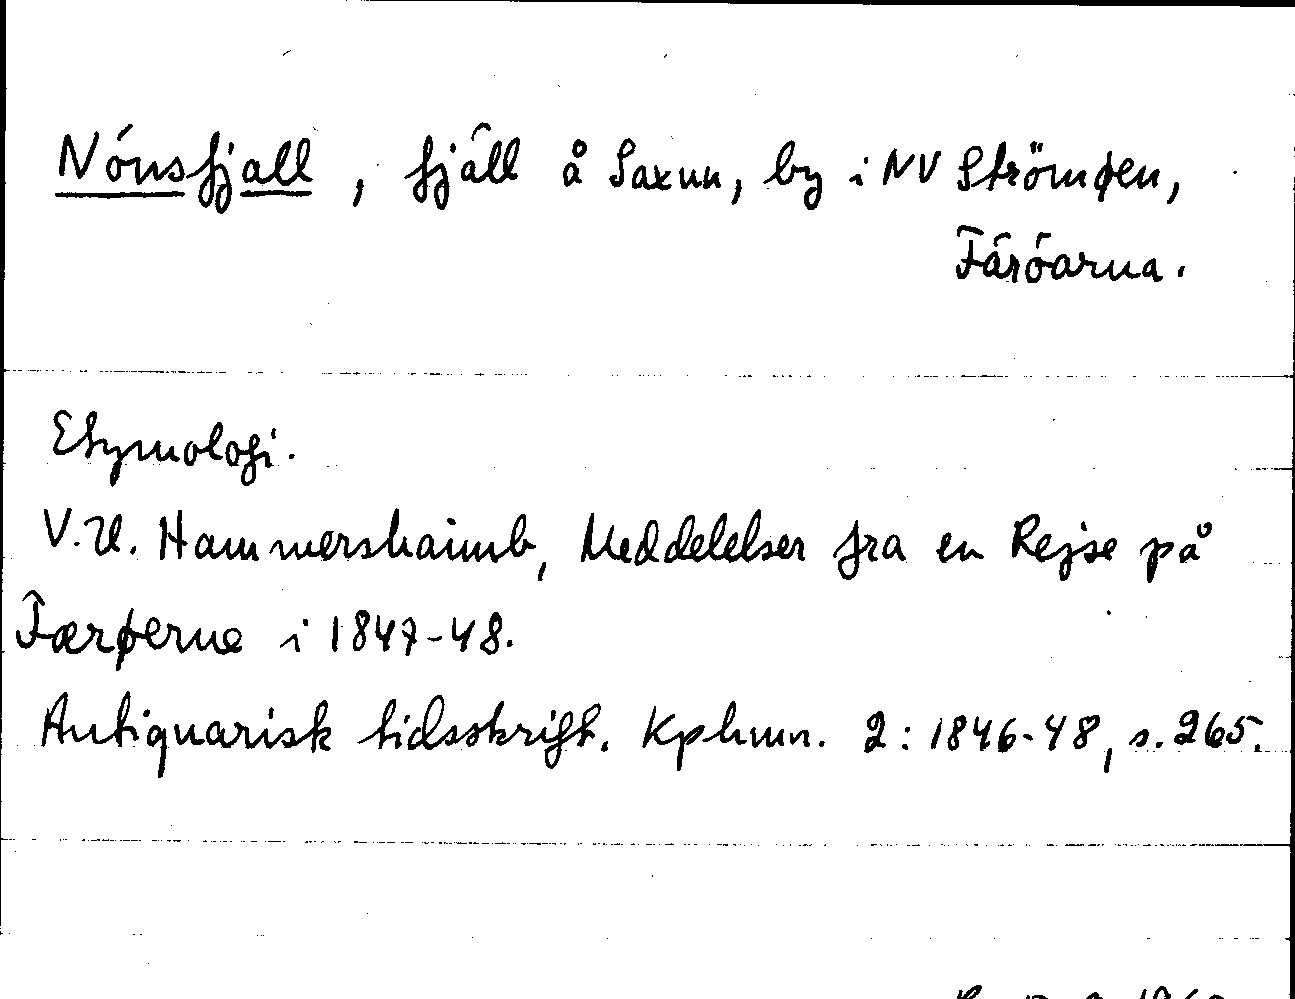 Nónsfjall, fjäll å Saxun, by i NV Strömøen,
Färöarna.
Etymologi.
V.U. Hammershaimb, Meddelelser fra en Rejse på
Færøerne i 1847-48.
Antiquarisk tidsskrift. Kphmn. 2: 1846-48, s. 265.